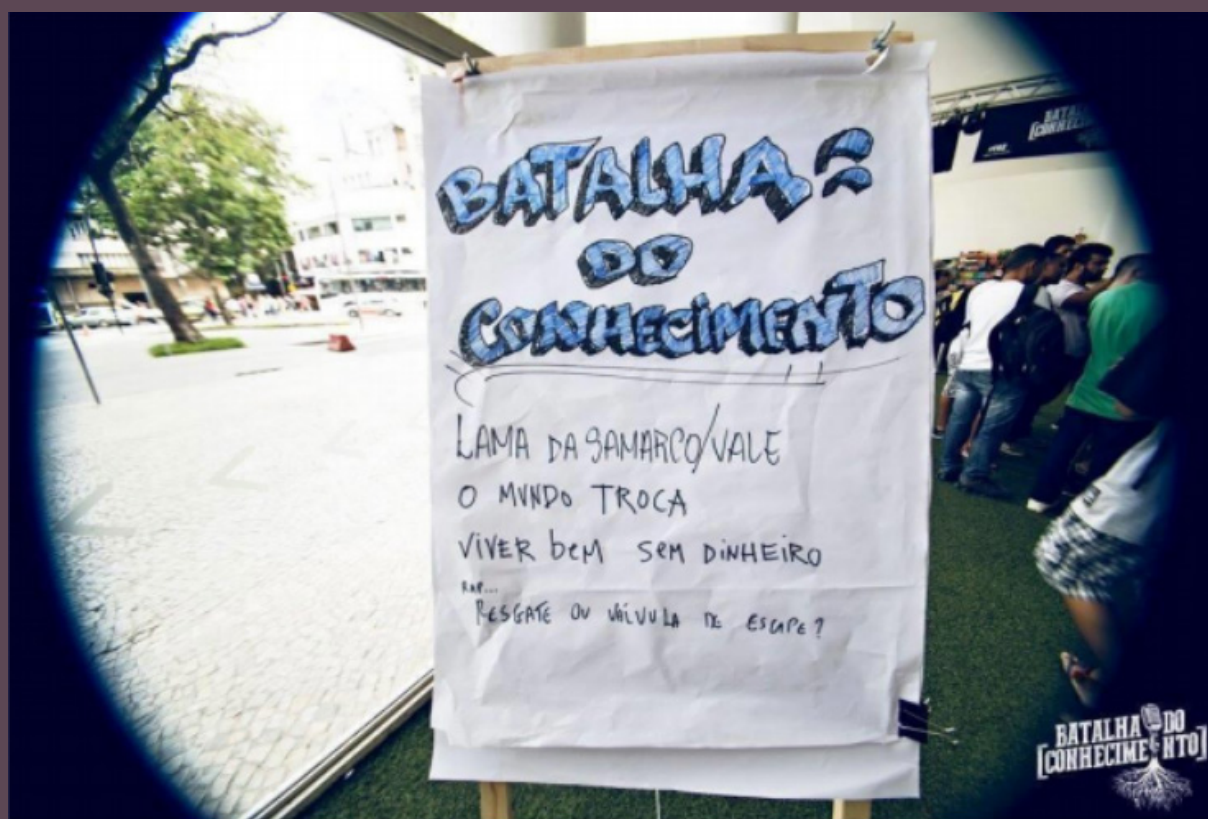 BATALHA
DO
CONHECIMENTO
LAMA DA SAMARCO/VALE
O MUNDO TROCA
VIVER bEM SEM DINHEIRO
RAP...
RESGATE OU VÁLVULA DE ESCAPE?
BATALHA DO
[CONHECIMENTO]